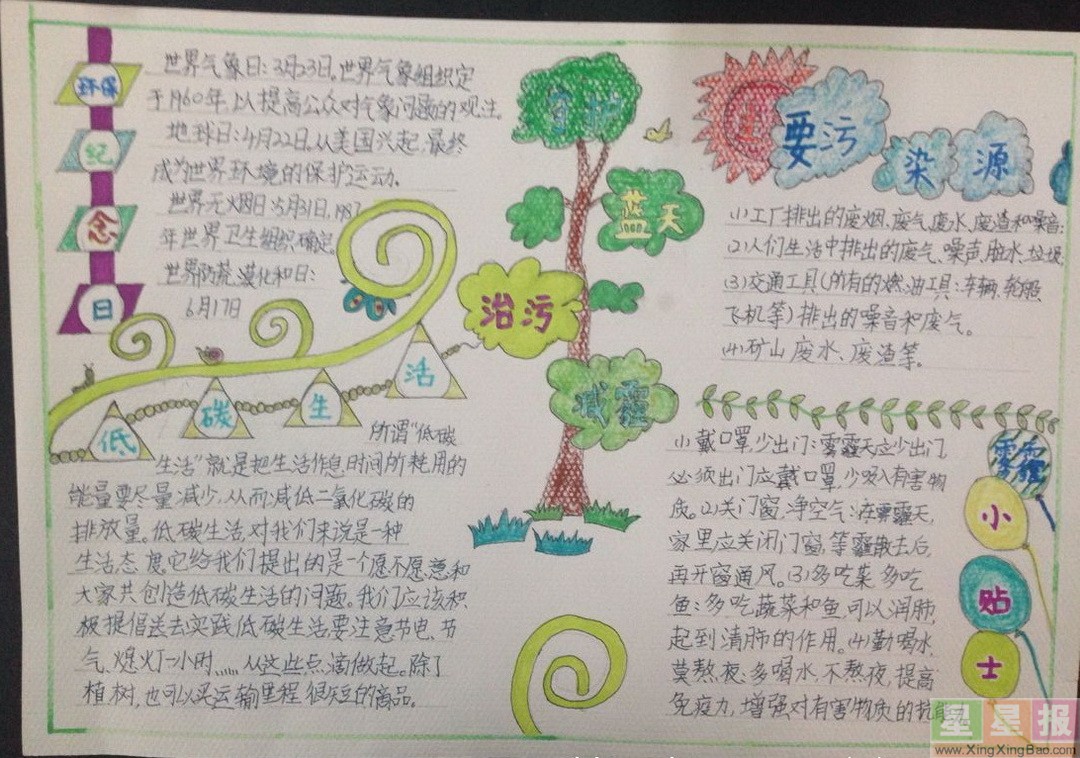 环保
纪
念
日
世界气象日:3月23日。世界气象组织定
于1960年,以提高公众对气象问题的观注。
地球日:4月22日。从美国兴起,最终
成为世界环境的保护运动。
世界无烟日:5月31日,1987
年世界卫生组织确定。
世界防荒漠化和日:
6月17日
低
碳
生
活
所谓“低碳
生活”就是把生活作息时间所耗用的
能量要尽量减少,从而减低二氧化碳的
排放量。低碳生活,对我们来说是一种
生活态度,它给我们提出的是一个愿不愿意和
大家共创造低碳生活的问题。我们应该积
极提倡送去实践低碳生活要注意节电、节
气、熄灯一小时……从这些点滴做起。除了
植树,也可以买运输里程很短的商品。
守护
蓝天
治污
减霾
主要污
染源
(1)工厂排出的废烟、废气、废水、废渣和噪音;
(2)人们生活中排出的废气、噪声、脏水、垃圾
(3)交通工具(所有的燃油工具:车辆、轮船
飞机等)排出的噪音和废气。
(4)矿山废水、废渣等。
雾霾
小
贴
士
(1)戴口罩,少出门:雾霾天应少出门,
必须出门应戴口罩,少吸入有害物
质。(2)关门窗,净空气:在雾霾天,
家里应关闭门窗,等霾散去后,
再开窗通风。(3)多吃菜,多吃
鱼:多吃蔬菜和鱼,可以润肺,
起到清肺的作用。(4)勤喝水,
莫熬夜:多喝水,不熬夜,提高
免疫力,增强对有害物质的抗能力
星星报
www.XingXingBao.com